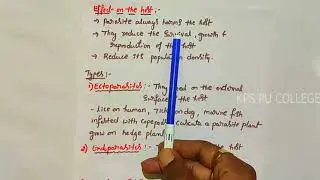 Effect on the host :-
→ Parasite always harms the host
→ They reduce the Survival, growth &
reproduction of the host
→ Reduce its population density.
Types :-
1) Ectoparasites :- They feed on the external
Surface of the host
- Lice on human, Tick on dog, marine fish
infested with Copepods, Cuscuta a parasite plant
grow on hedge plant
2) Endoparasites :- the host
KPS PU COLLEGE